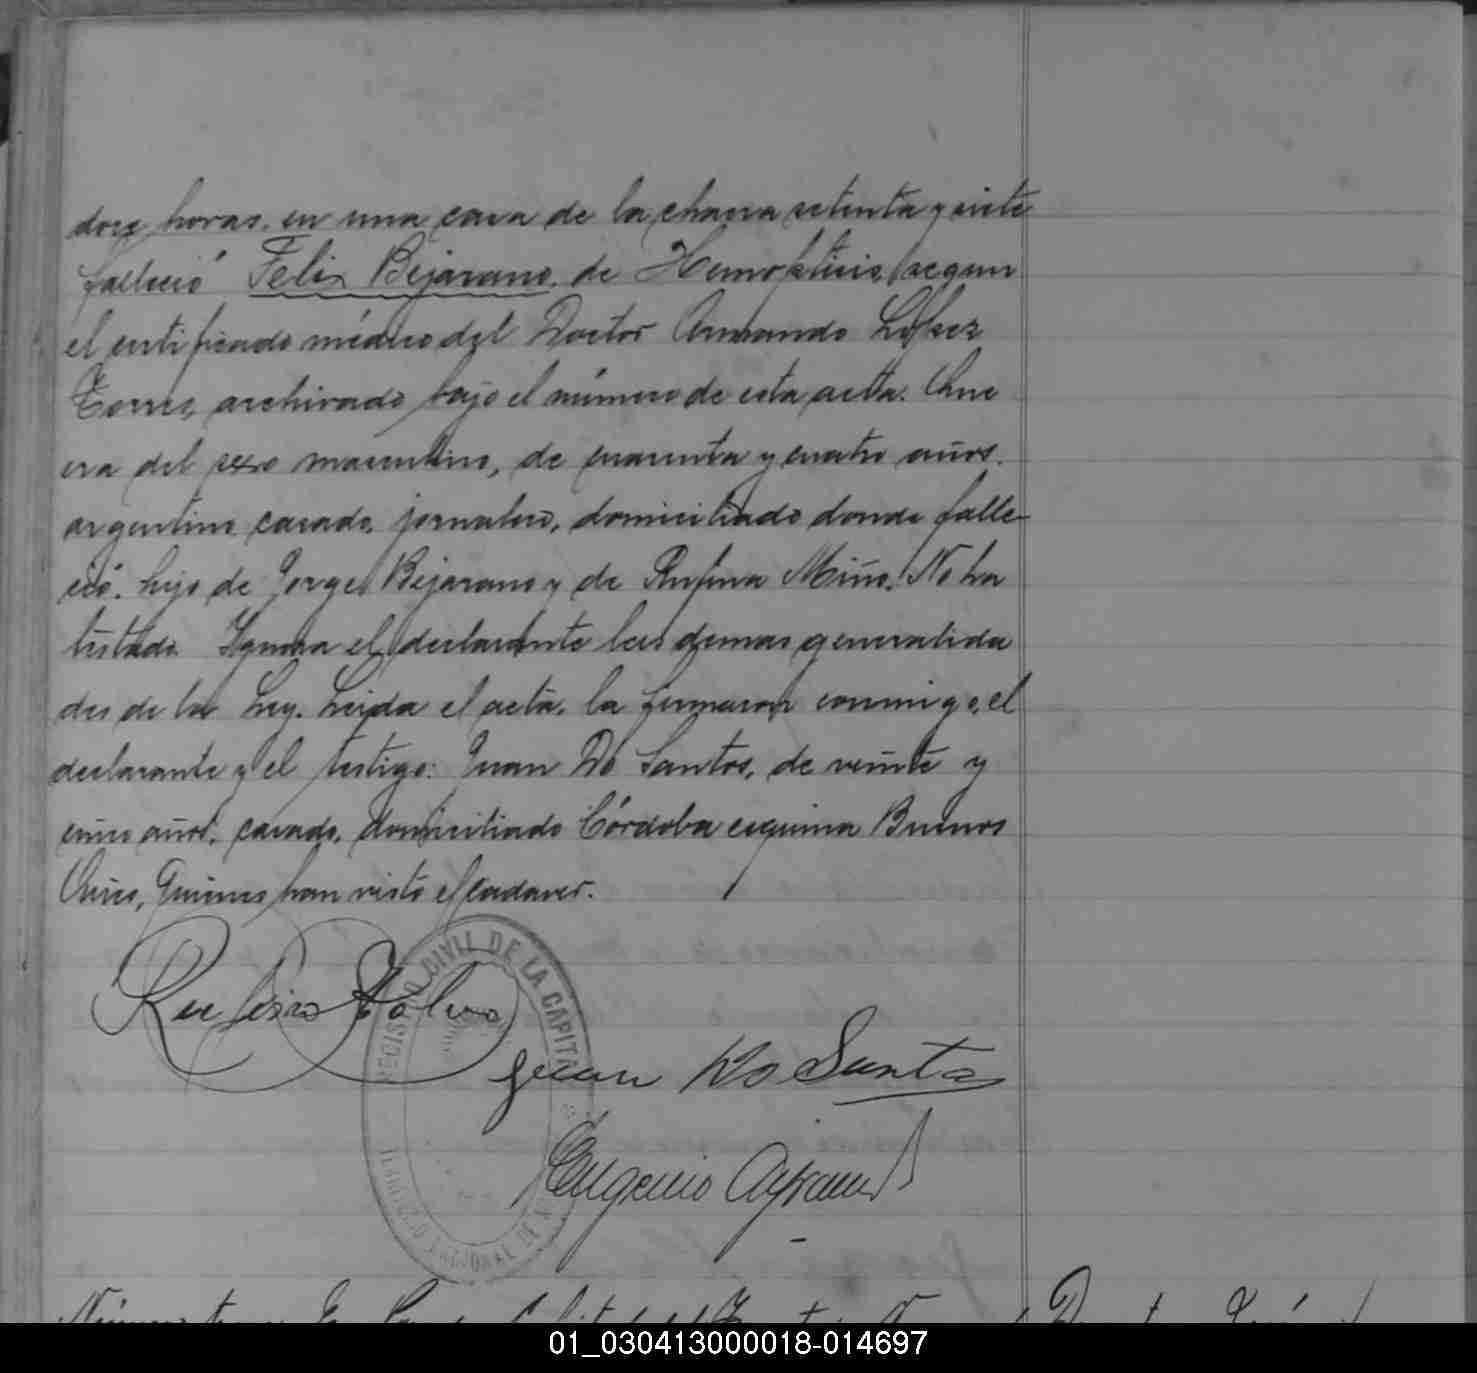 doce horas, en una casa de la chacra setenta y siete
falleció Felix Bejarano, de Hemoptisis, segun
el certificado médico del Doctor Armando López
Torres, archivado bajo el número de esta acta. Que
era del sexo masculino, de cuarenta y cuatro años.
argentino, casado, jornalero, domiciliado donde falle-
ció. hijo de Jorge Bejarano y de Rufina Miño. No ha
testado. Ignora el declarante las demas generalida
des de la Ley. Leida el acta, la firmaron conmigo, el
declarante y el testigo: Juan Do Santos, de veinte y
cinco años, casado, domiciliado Córdoba esquina Buenos
Aires, Quienes han visto el cadaver.
REGISTRO CIVIL DE LA CAPITAL
Juan Do Santos
Eugenio
TERRITORIO NACIONAL DE
01_030413000018-014697